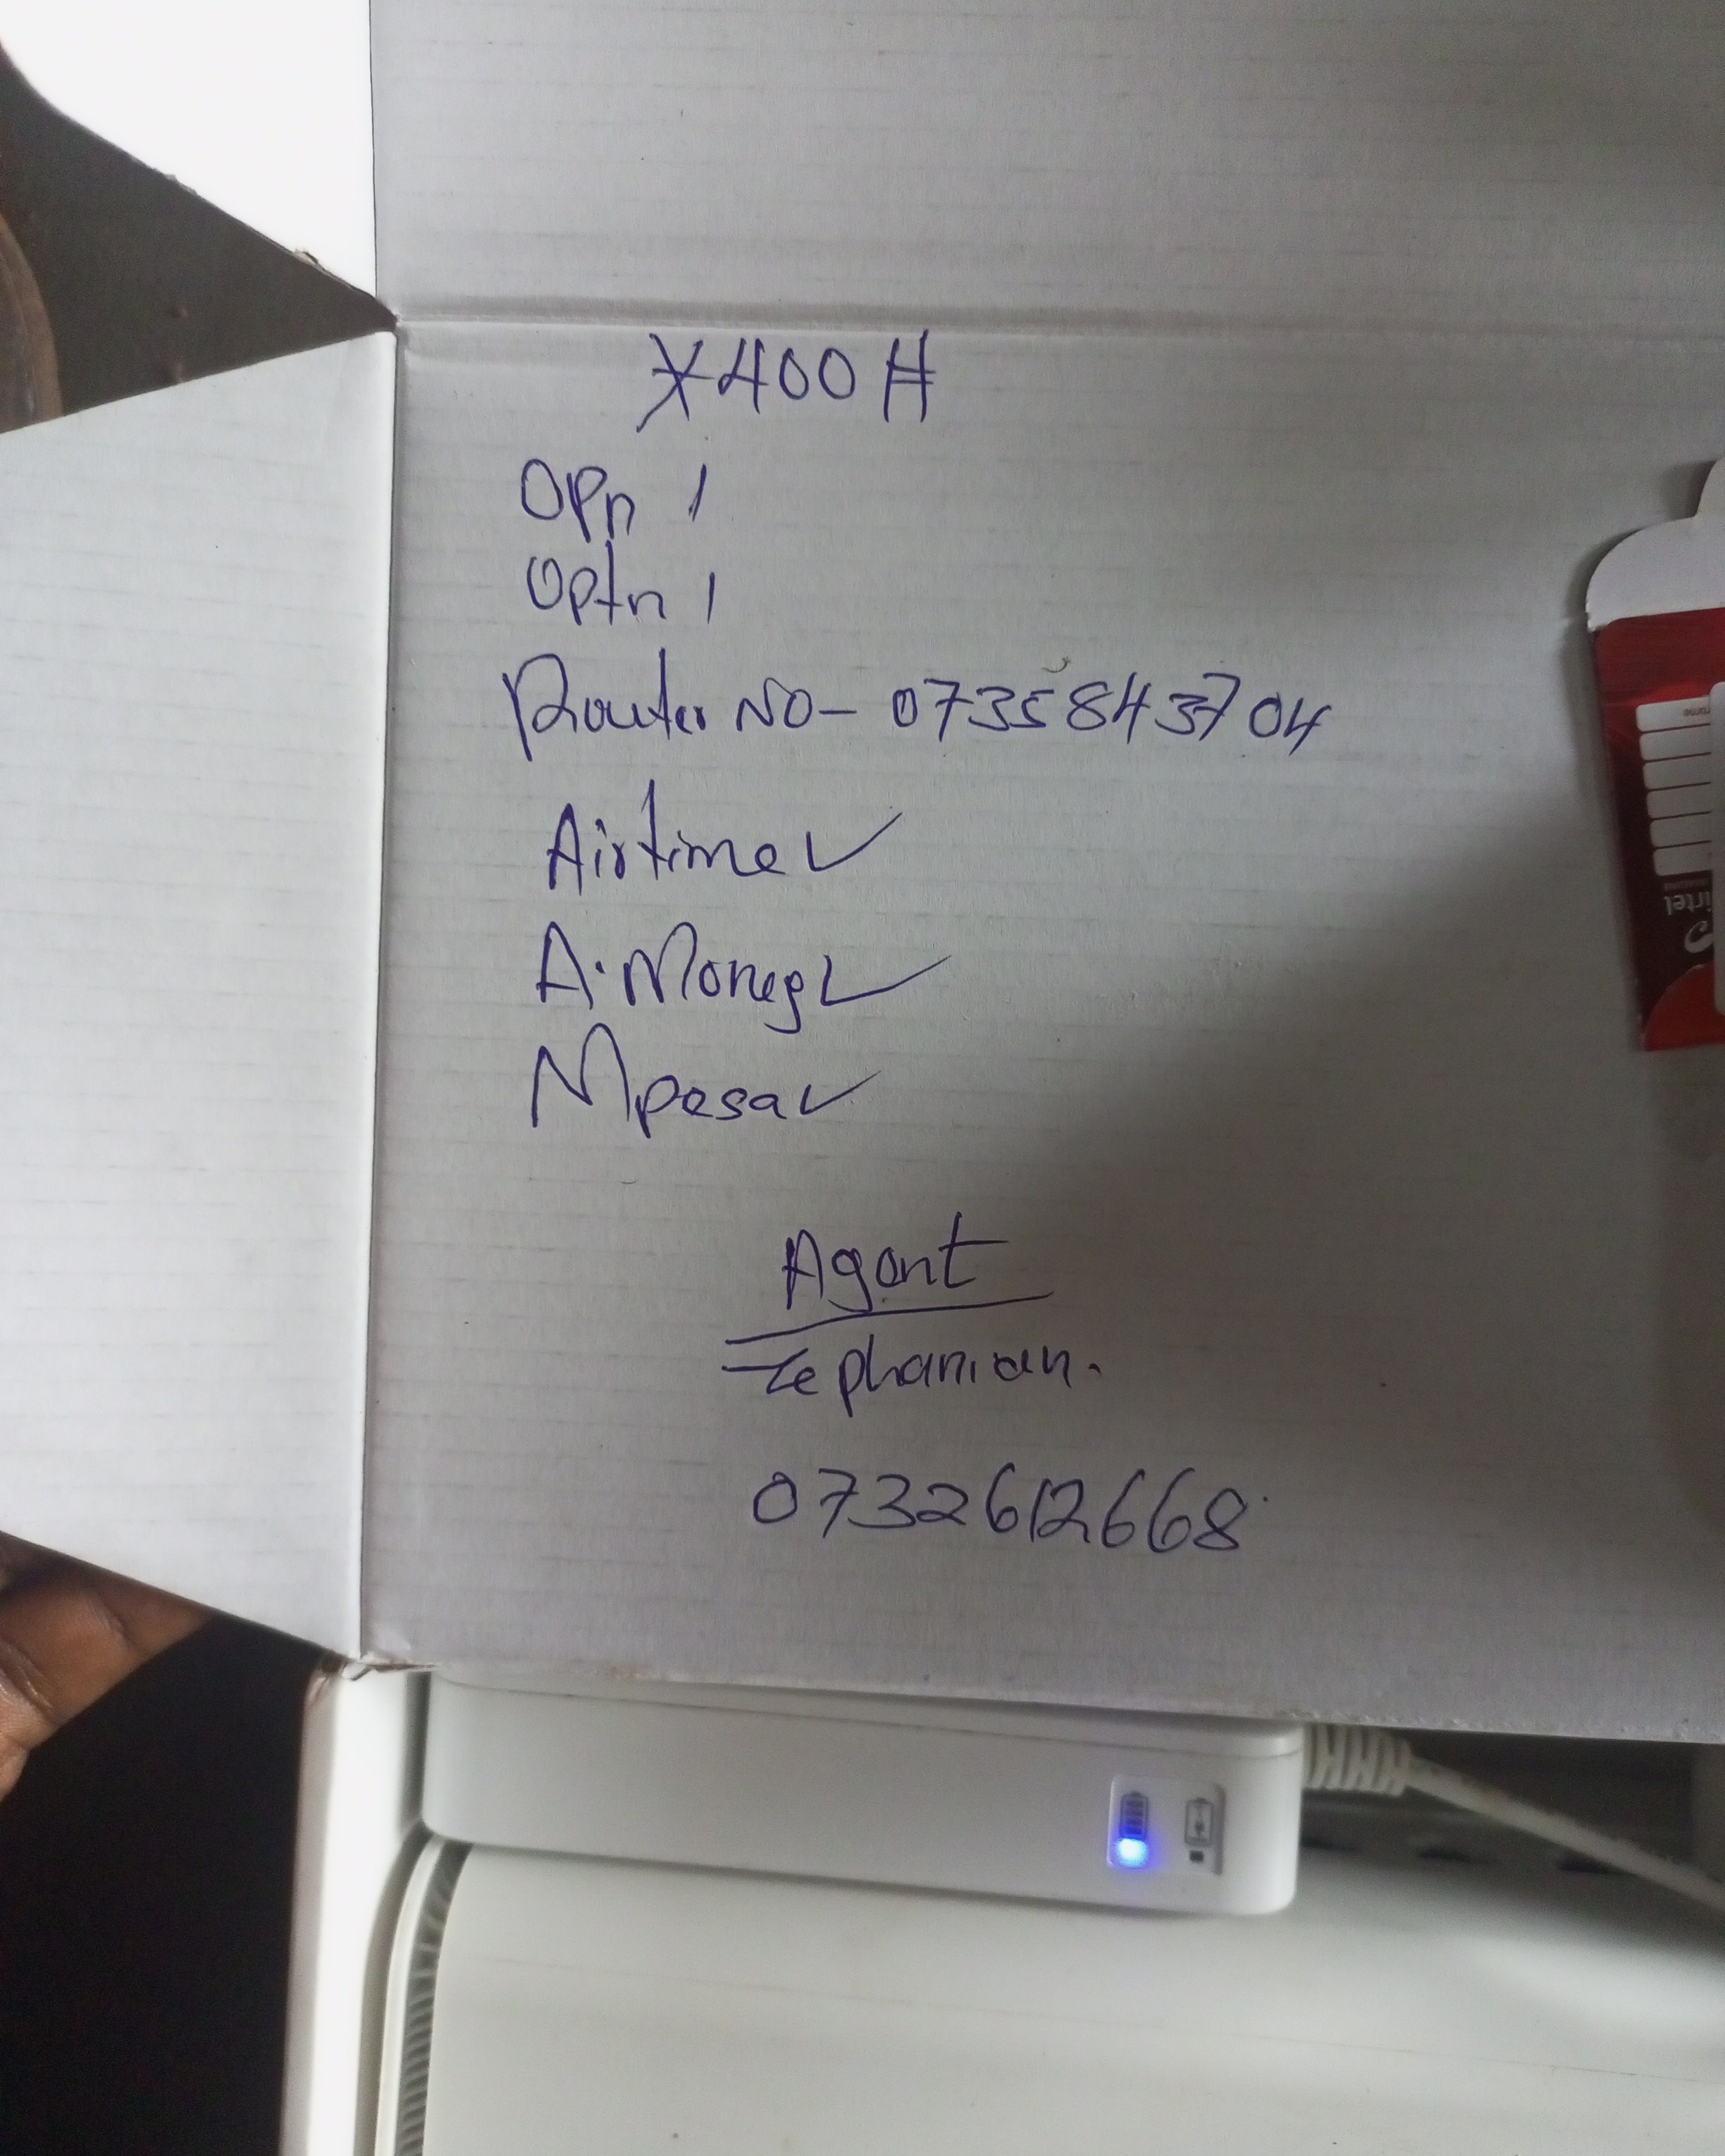 *400#
OPn 1
Optn 1
Router NO- 0735843704
Airtime ✓
A. Money ✓
Mpesa ✓
Agent
Zephanian.
0732612668
irtel